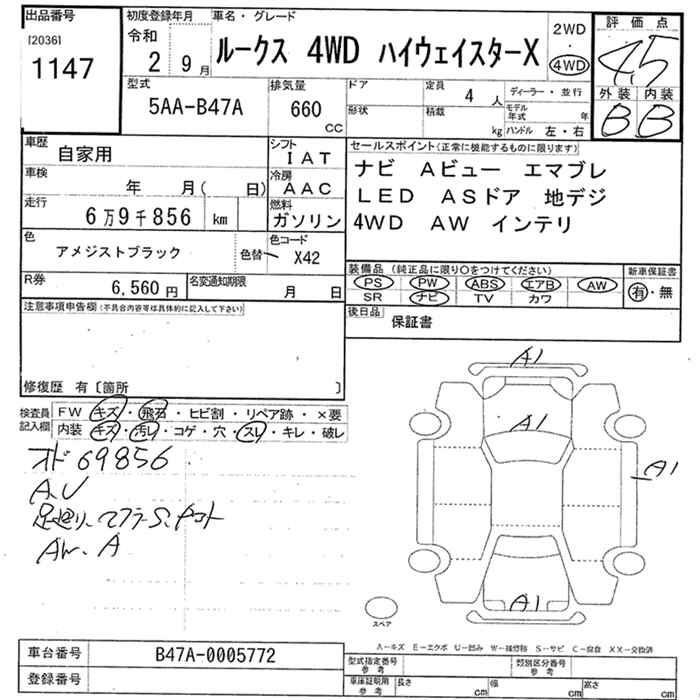 出品番号
[2036]
1147
初度登録年月
令和
2 9月
車名・グレード
ルークス 4WD ハイウェイスターX
2WD
・
4WD
評価点
4.5
外装 内装
B B
型式
5AA-B47A
排気量
660
CC
ドア
形状
定員
4 人
積載
kg
ディーラー・並行
モデル年式 年
ハンドル 左・右
車歴
自家用
シフト
IAT
車検
年 月( 日)
冷房
AAC
走行
6万9千856 km
燃料
ガソリン
色
アメジストブラック
色替
色コード
X42
R券
6,560円
名変通知期限
月 日
セールスポイント(正常に機能するものに限ります)
ナビ Aビュー エマブレ
LED ASドア 地デジ
4WD AW インテリ
装備品 (純正品に限り○をつけてください)
PS PW ABS エアB AW
SR ナビ TV カワ
新車保証書
有・無
後日品
保証書
注意事項申告欄(不具合内容等は具体的に記入して下さい)
修復歴 有〔箇所 〕
検査員
記入欄
FW キズ・飛石・ヒビ割・リペア跡・×要
内装 キズ・汚レ・コゲ・穴・スレ・キレ・破レ
オド69856
A.U
足廻り、マフラーS、ヤコト
AW、A
A1
A1
A1
A1
スペア
A-キズ E-エクボ U-凹み W-補修跡 S-サビ C-腐食 XX-交換済
車台番号
B47A-0005772
登録番号
型式指定番号
参考
類別区分番号
参考
車庫証明用
参考
長さ cm
幅 cm
高さ cm